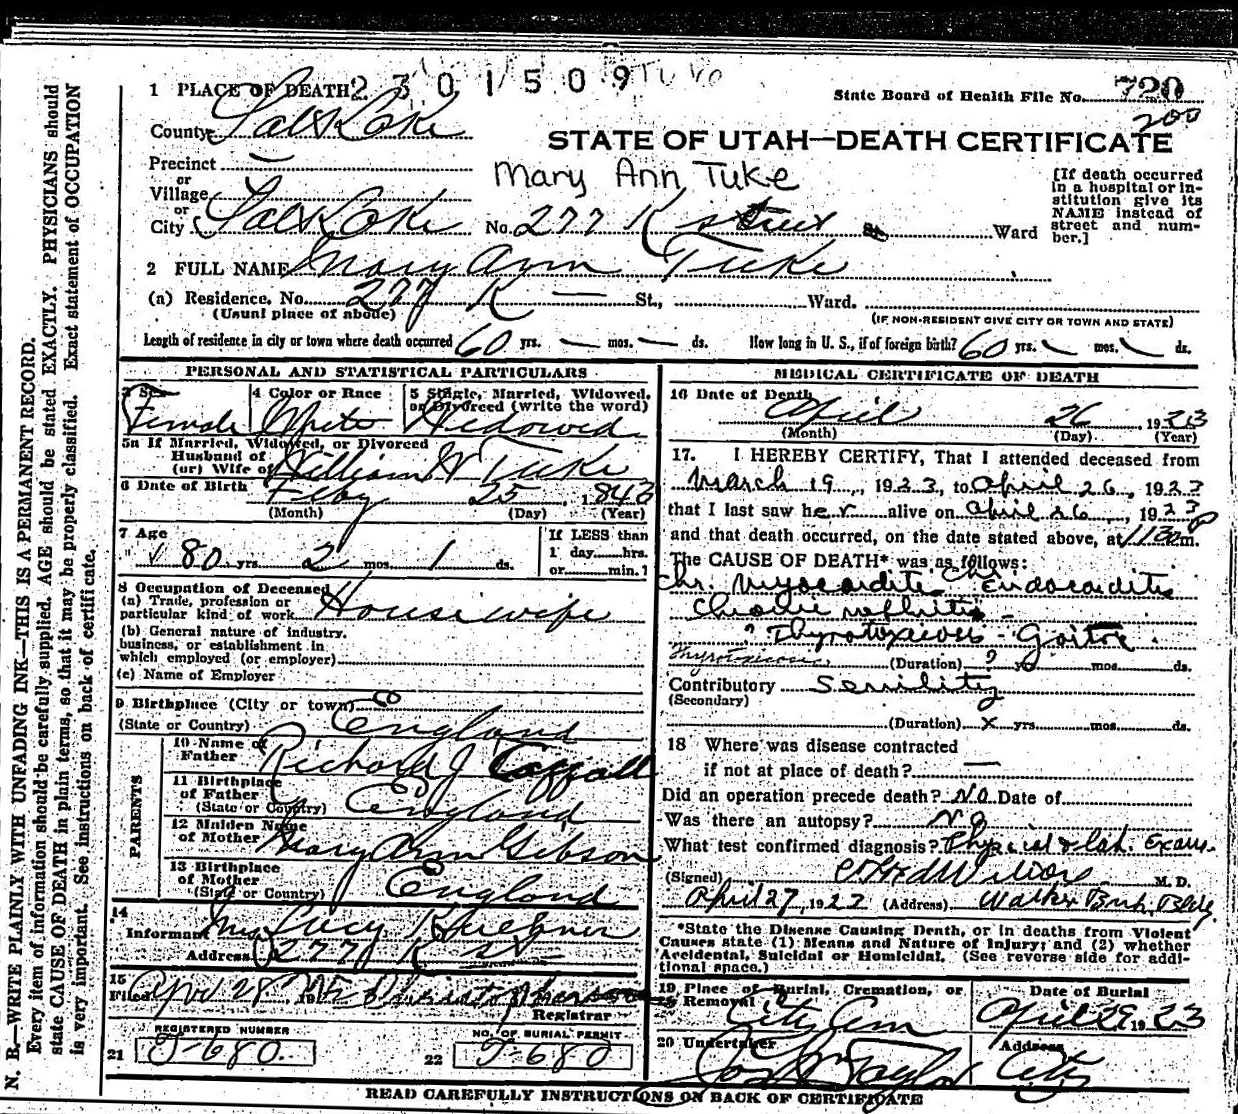 2301509 Tuke
1 PLACE OF DEATH
State Board of Health File No. 720
200
County Salt Lake
STATE OF UTAH—DEATH CERTIFICATE
Precinct —
or
Village
or
Mary Ann Tuke
[If death occurred in a hospital or in-
stitution give its
NAME instead of
street and num-
ber.]
City Salt Lake No. 277 K Street St. Ward
2 FULL NAME Mary Ann Tuke
(a) Residence. No. 277 K — St., Ward.
(Usual place of abode) (IF NON-RESIDENT GIVE CITY OR TOWN AND STATE)
Length of residence in city or town where death occurred 60 yrs. — mos. — ds. How long in U. S., if of foreign birth? 60 yrs. — mos. — ds.
PERSONAL AND STATISTICAL PARTICULARS
3 Sex 4 Color or Race 5 Single, Married, Widowed,
or Divorced (write the word)
Female White Widowed
5a If Married, Widowed, or Divorced
Husband of
(or) Wife of William W Tuke
6 Date of Birth Feby 25 1843
(Month) (Day) (Year)
7 Age If LESS than
80 yrs. 2 mos. 1 ds. 1 day hrs.
or min.
8 Occupation of Deceased
(a) Trade, profession or
particular kind of work Housewife
(b) General nature of industry.
business, or establishment in
which employed (or employer)
(c) Name of Employer
9 Birthplace (City or town)
(State or Country) England
PARENTS
10 Name of
Father Richard J
11 Birthplace
of Father
(State or Country) England
12 Maiden Name
of Mother Mary Ann Gibson
13 Birthplace
of Mother
(State or Country) England
14
Informant Mrs Lucy
Address 277 K St
15
Filed April 28
Registrar
REGISTERED NUMBER NO. OF BURIAL PERMIT
21 T-680. 22 T-680
MEDICAL CERTIFICATE OF DEATH
16 Date of Death
April 26 1923
(Month) (Day) (Year)
17. I HEREBY CERTIFY, That I attended deceased from
March 19, 1923, to April 26, 1923
that I last saw her alive on April 26, 1923
and that death occurred, on the date stated above, at 1130 p m.
The CAUSE OF DEATH* was as follows:
Chr. Myocarditis Chr. Endocarditis
Chronic nephritis
? Thyrotoxicosis - Goitre.
Thyrotoxicosis (Duration) ? yrs. mos. ds.
Contributory Senility
(Secondary)
(Duration) x yrs. mos. ds.
18 Where was disease contracted
if not at place of death? —
Did an operation precede death? No Date of
Was there an autopsy? No
What test confirmed diagnosis? Physical & Lab. Exam.
(Signed) M. D.
April 27, 1923 (Address) Walker Bank Bldg
*State the Disease Causing Death, or in deaths from Violent
Causes state (1) Means and Nature of Injury; and (2) whether
Accidental, Suicidal or Homicidal. (See reverse side for addi-
tional space.)
19 Place of Burial, Cremation, or Date of Burial
Removal
City Cem April 29 1923
20 Undertaker Address
Taylor City
READ CAREFULLY INSTRUCTIONS ON BACK OF CERTIFICATE
N. B.—WRITE PLAINLY WITH UNFADING INK—THIS IS A PERMANENT RECORD.
Every item of information should be carefully supplied. AGE should be stated EXACTLY. PHYSICIANS should
state CAUSE OF DEATH in plain terms, so that it may be properly classified. Exact statement of OCCUPATION
is very important. See instructions on back of certificate.